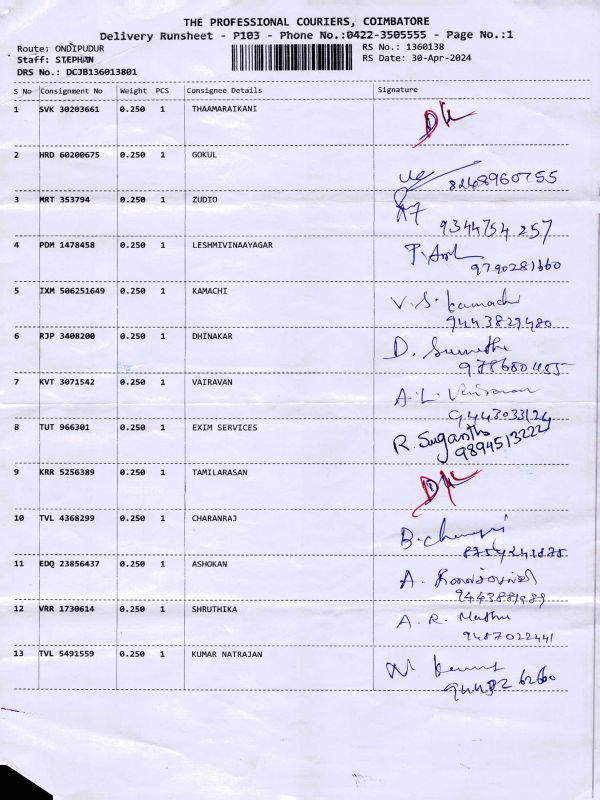 THE PROFESSIONAL COURIERS, COIMBATORE
Delivery Runsheet - P103 - Phone No.:0422-3505555 - Page No.:1
Route: ONDIPUDUR RS No.: 1360138
Staff: STEPHAN RS Date: 30-Apr-2024
DRS No.: DCJB136013801
S No Consignment No Weight PCS Consignee Details Signature
1 SVK 30203661 0.250 1 THAAMARAIKANI
2 HRD 60200675 0.250 1 GOKUL
8248960755
3 MRT 353794 0.250 1 ZUDIO
9344754 257
4 PDM 1478458 0.250 1 LESHMIVINAAYAGAR
9790281660
5 IXM 506251649 0.250 1 KAMACHI V. S. Kamachi
9443829480
6 RJP 3408200 0.250 1 DHINAKAR D. Sumathi
7 KVT 3071542 0.250 1 VAIRAVAN A. L. Vairavan
9443033124
8 TUT 966301 0.250 1 EXIM SERVICES R. Sugantha
9894513222
9 KRR 5256389 0.250 1 TAMILARASAN
10 TVL 4368299 0.250 1 CHARANRAJ
8754241875
11 EDQ 23856437 0.250 1 ASHOKAN A.
12 VRR 1730614 0.250 1 SHRUTHIKA A. R.
9487022441
13 TVL 5491559 0.250 1 KUMAR NATRAJAN